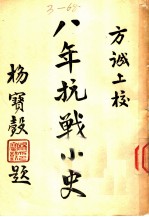 3-68
方誠上校
八年抗戰小史
楊寶瑴題